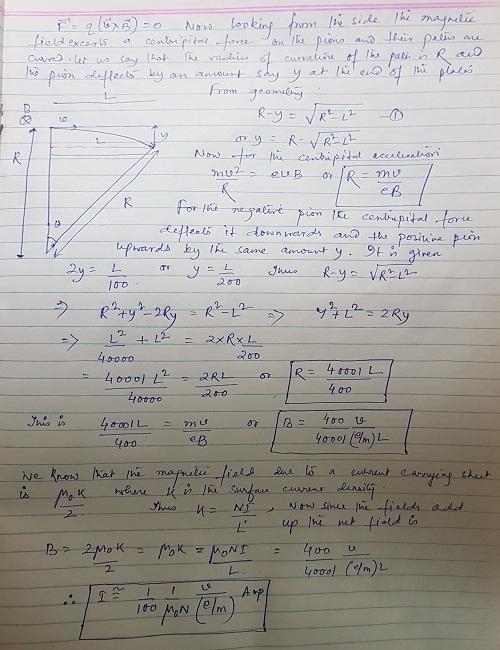 F⃗ = q(v⃗×B⃗) = 0 Now looking from the side the magnetic
field exerts a centripital force on the pions and their paths are
curved. let us say that the radius of curvature of the path is R and
the pion deflects by an amount say y at the end of the plates
From geometry
L
R-y = √R²-L² — ①
B
⊗
v
L
y
or y = R - √R²-L²
Now for the centripital acceleration
R
R
mv²/R = evB or R = mv/eB
θ
For the negative pion the centripital force
deflects it downwards and the positive pion
upwards by the same amount y. It is given
2y = L/100 or y = L/200 Thus R-y = √R²-L²
⇒ R²+y²-2Ry = R²-L² ⇒ y²+L² = 2Ry
⇒ L²/40000 + L² = 2×R×L/200
= 40001L²/40000 = 2RL/200 or R = 40001 L/400
This is 40001L/400 = mv/eB or B = 400 v/40001 (e/m) L
We know that the magnetic field due to a current carrying sheet
is μ₀K/2 where K is the surface current density.
Thus K = NI/L, Now since the fields add
up the net field is
B = 2μ₀K/2 = μ₀K = μ₀NI/L = 400 v/40001 (e/m)L
∴ I ≅ 1/100 1/μ₀N v/(e/m) Amp